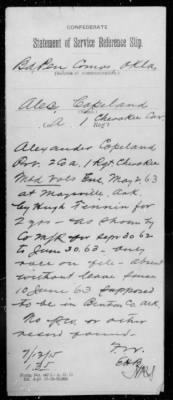 CONFEDERATE
Statement of Service Reference Slip.
Bd Pen Comrs Okla.
Alex. Copeland
(Name.)
Co. A 1 Cherokee Cav.
Reg't
Alexander Copeland
Pvt. 2 Co A, 1 Rgt Cherokee
Mtd Vols Enl May 1, 63
at Maysville, Ark
by Hugh Tennin for
2 yrs - as shown by
Co M/R for Sept 30 62
to June 30. 63. only
roll on file - absent
without leave since
10 June 63 supposed
to be in Benton Co. Ark
No P/w. or other
record found.
7/12/15